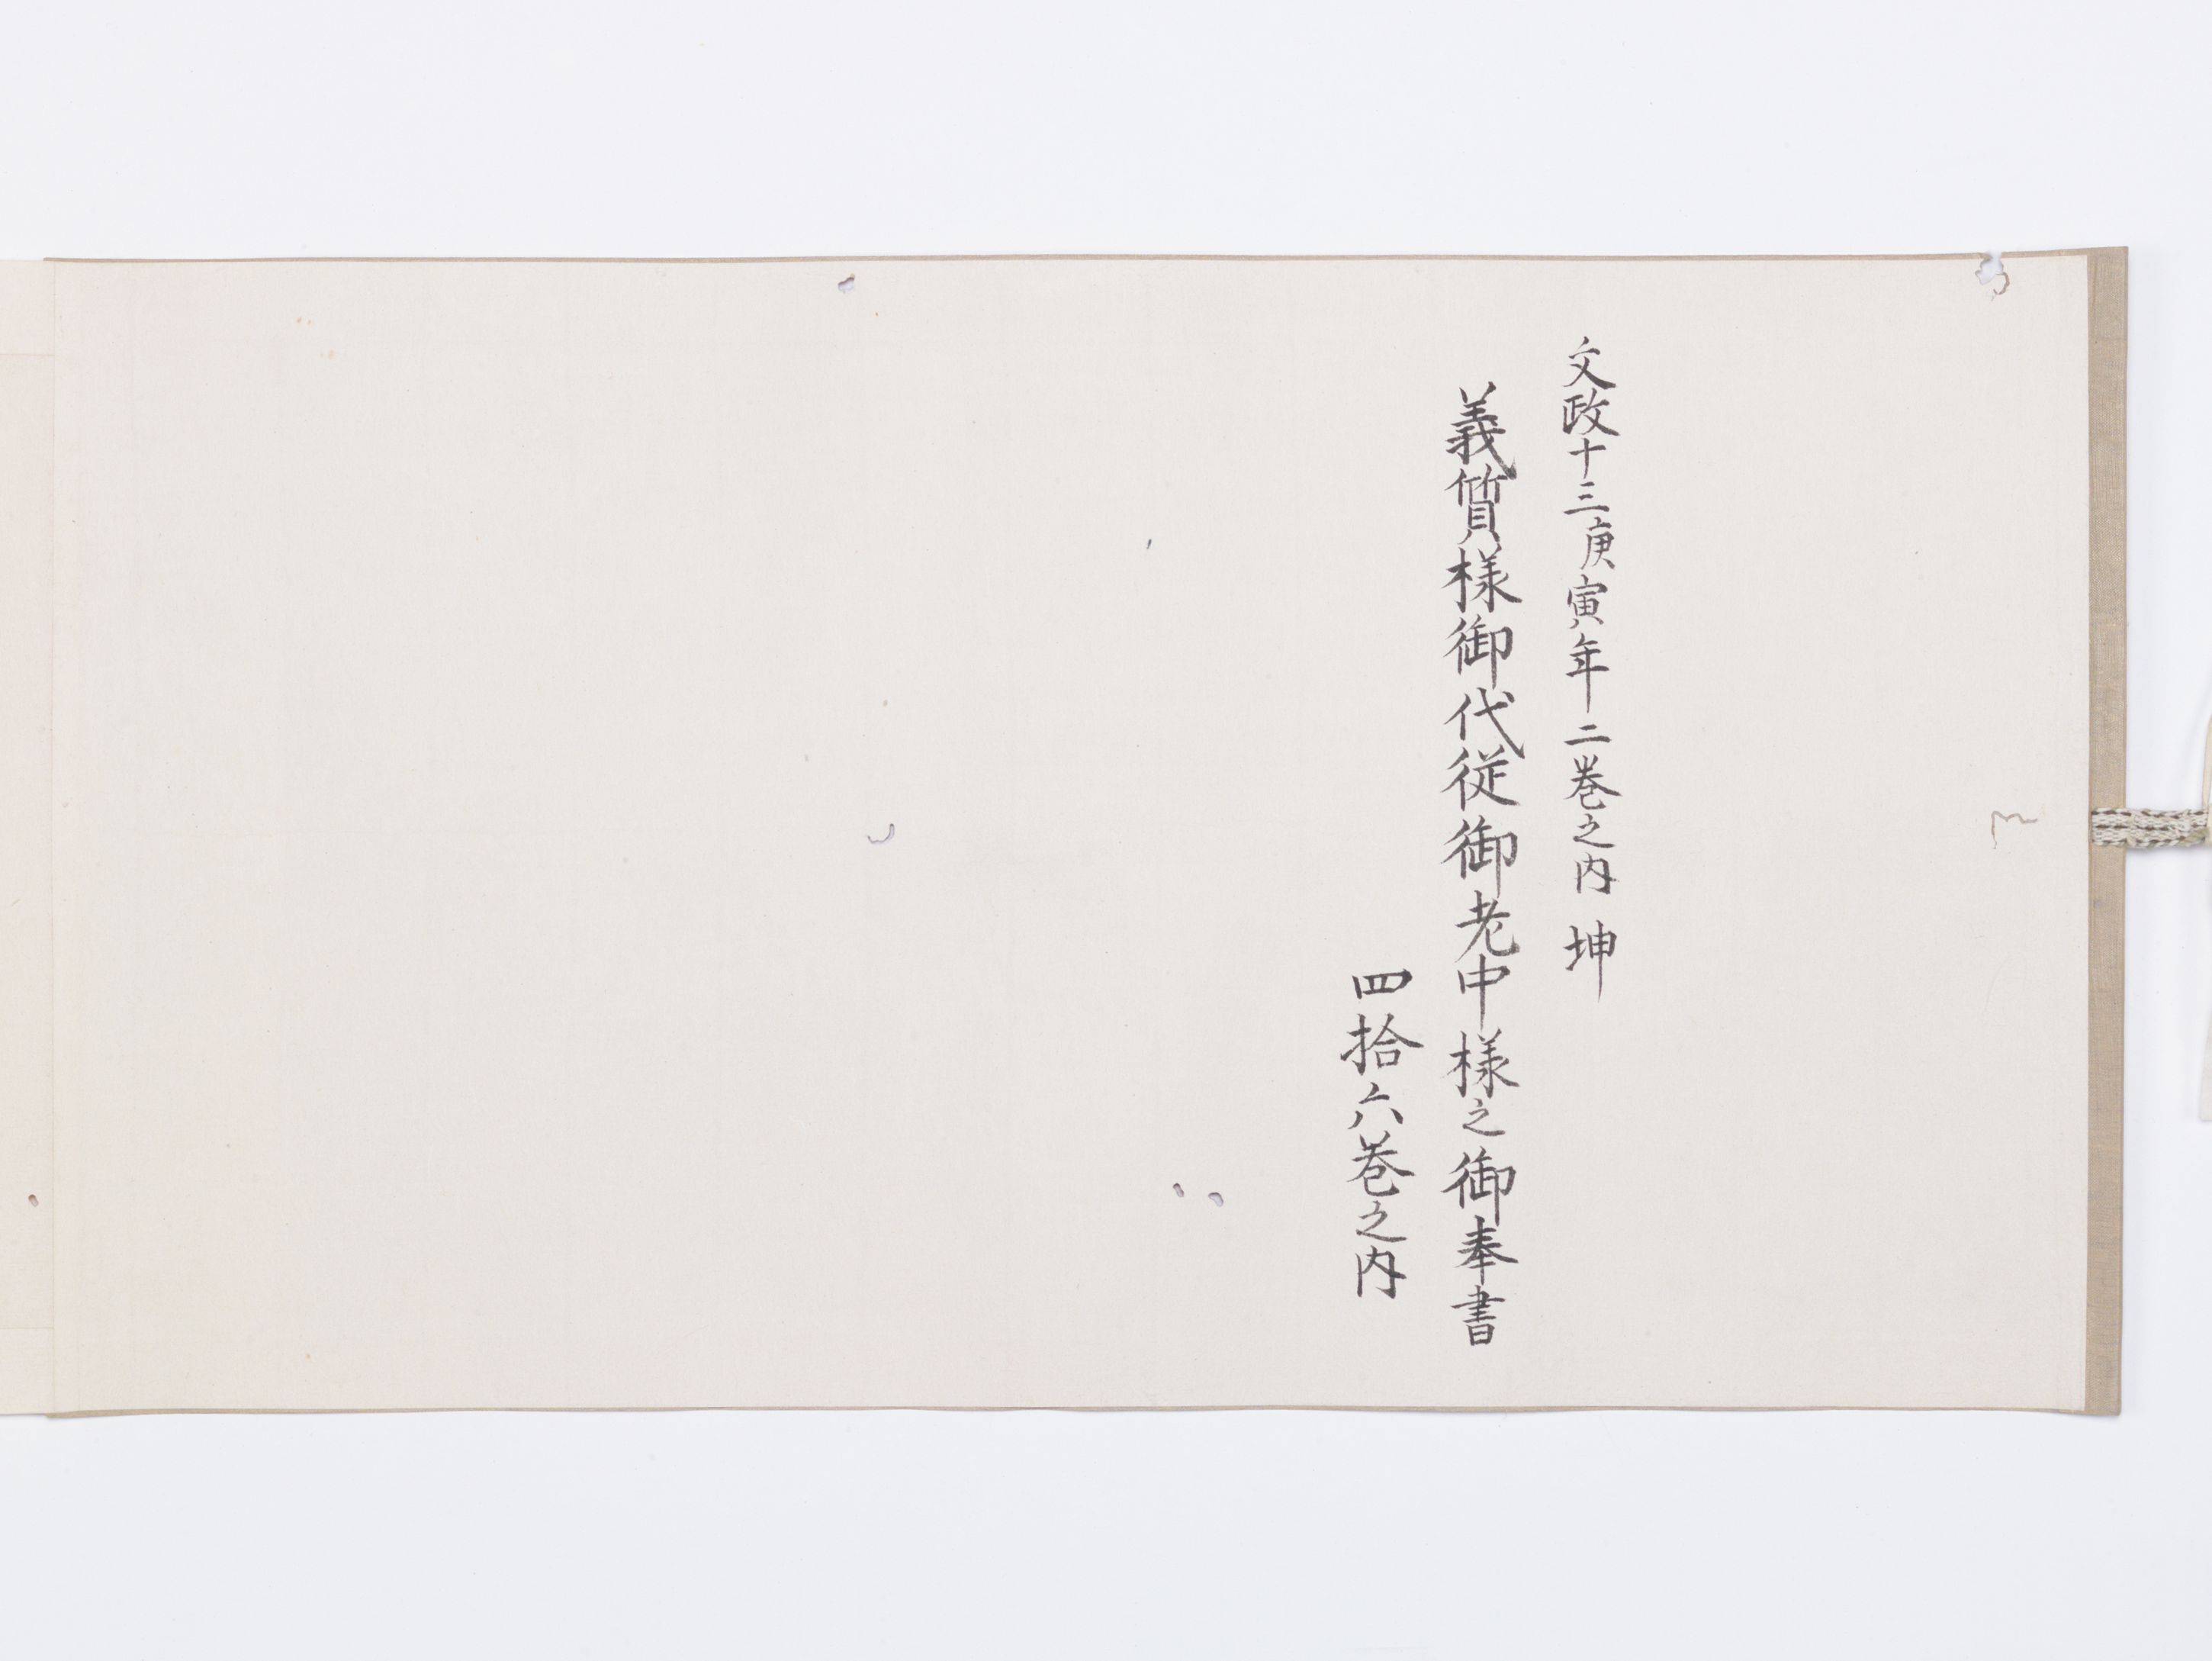 文政十三庚寅年二巻之内 坤
義質様御代従御老中様之御奉書
四拾六巻之内